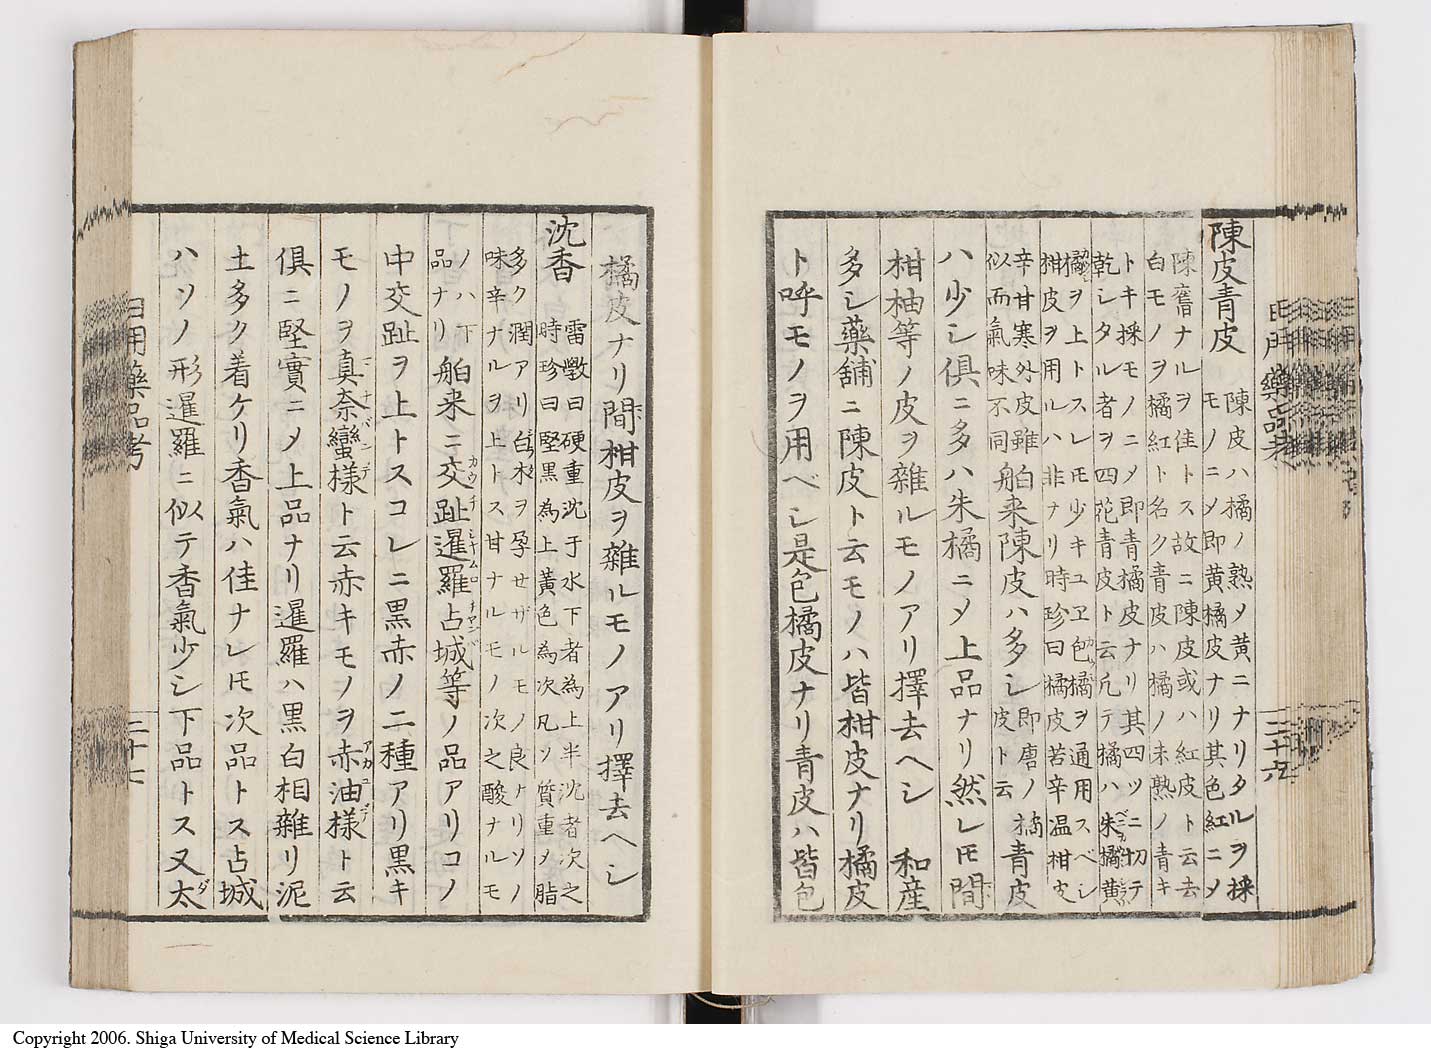 陳皮青皮
陳皮ハ橘ノ熟メ黄ニナリタルヲ採
モノニメ即黄橘皮ナリ其色紅ニメ
陳舊ナルヲ佳トス故ニ陳皮或ハ紅皮ト云去
白モノヲ橘紅ト名ク青皮ハ橘ノ未熟ノ青キ
トキ採モノニメ即青橘皮ナリ其四ツニ切テ
乾シタル者ヲ四花青皮ト云凡テ橘ハ朱橘黄
橘ヲ上トスレ𪜈少キユヱ包橘ヲ通用スベシ
柑皮ヲ用ルハ非ナリ時珍曰橘皮苦辛温柑皮
辛甘寒外皮雖
似而氣味不同
舶来陳皮ハ多シ
即唐ノ橘
皮ト云
青皮
ハ少シ俱ニ多ハ朱橘ニメ上品ナリ然レ𪜈間
柑柚等ノ皮ヲ雜ルモノアリ擇去ヘシ 和産
多シ藥舖ニ陳皮ト云モノハ皆柑皮ナリ橘皮
ト呼モノヲ用ベシ是包橘皮ナリ青皮ハ皆包
二十六
橘皮ナリ間柑皮ヲ雜ルモノアリ擇去ヘシ
沈香
雷斆曰硬重沈于水下者為上半沈者次之
時珍曰堅黒為上黄色為次凡ソ質重メ脂
多ク潤アリ白木ヲ孕セザルモノ良ナリソノ
味辛ナルヲ上トス甘ナルモノ次之酸ナルモ
ノハ下
品ナリ
舶来ニ交趾暹羅占城等ノ品アリコノ
中交趾ヲ上トスコレニ黒赤ノ二種アリ黒キ
モノヲ真奈蠻様ト云赤キモノヲ赤油様ト云
俱ニ堅實ニメ上品ナリ暹羅ハ黒白相雜リ泥
土多ク着ケリ香氣ハ佳ナレ𪜈次品トス占城
ハソノ形暹羅ニ似テ香氣少シ下品トス又太
日用藥品考
二十七
Copyright 2006. Shiga University of Medical Science Library